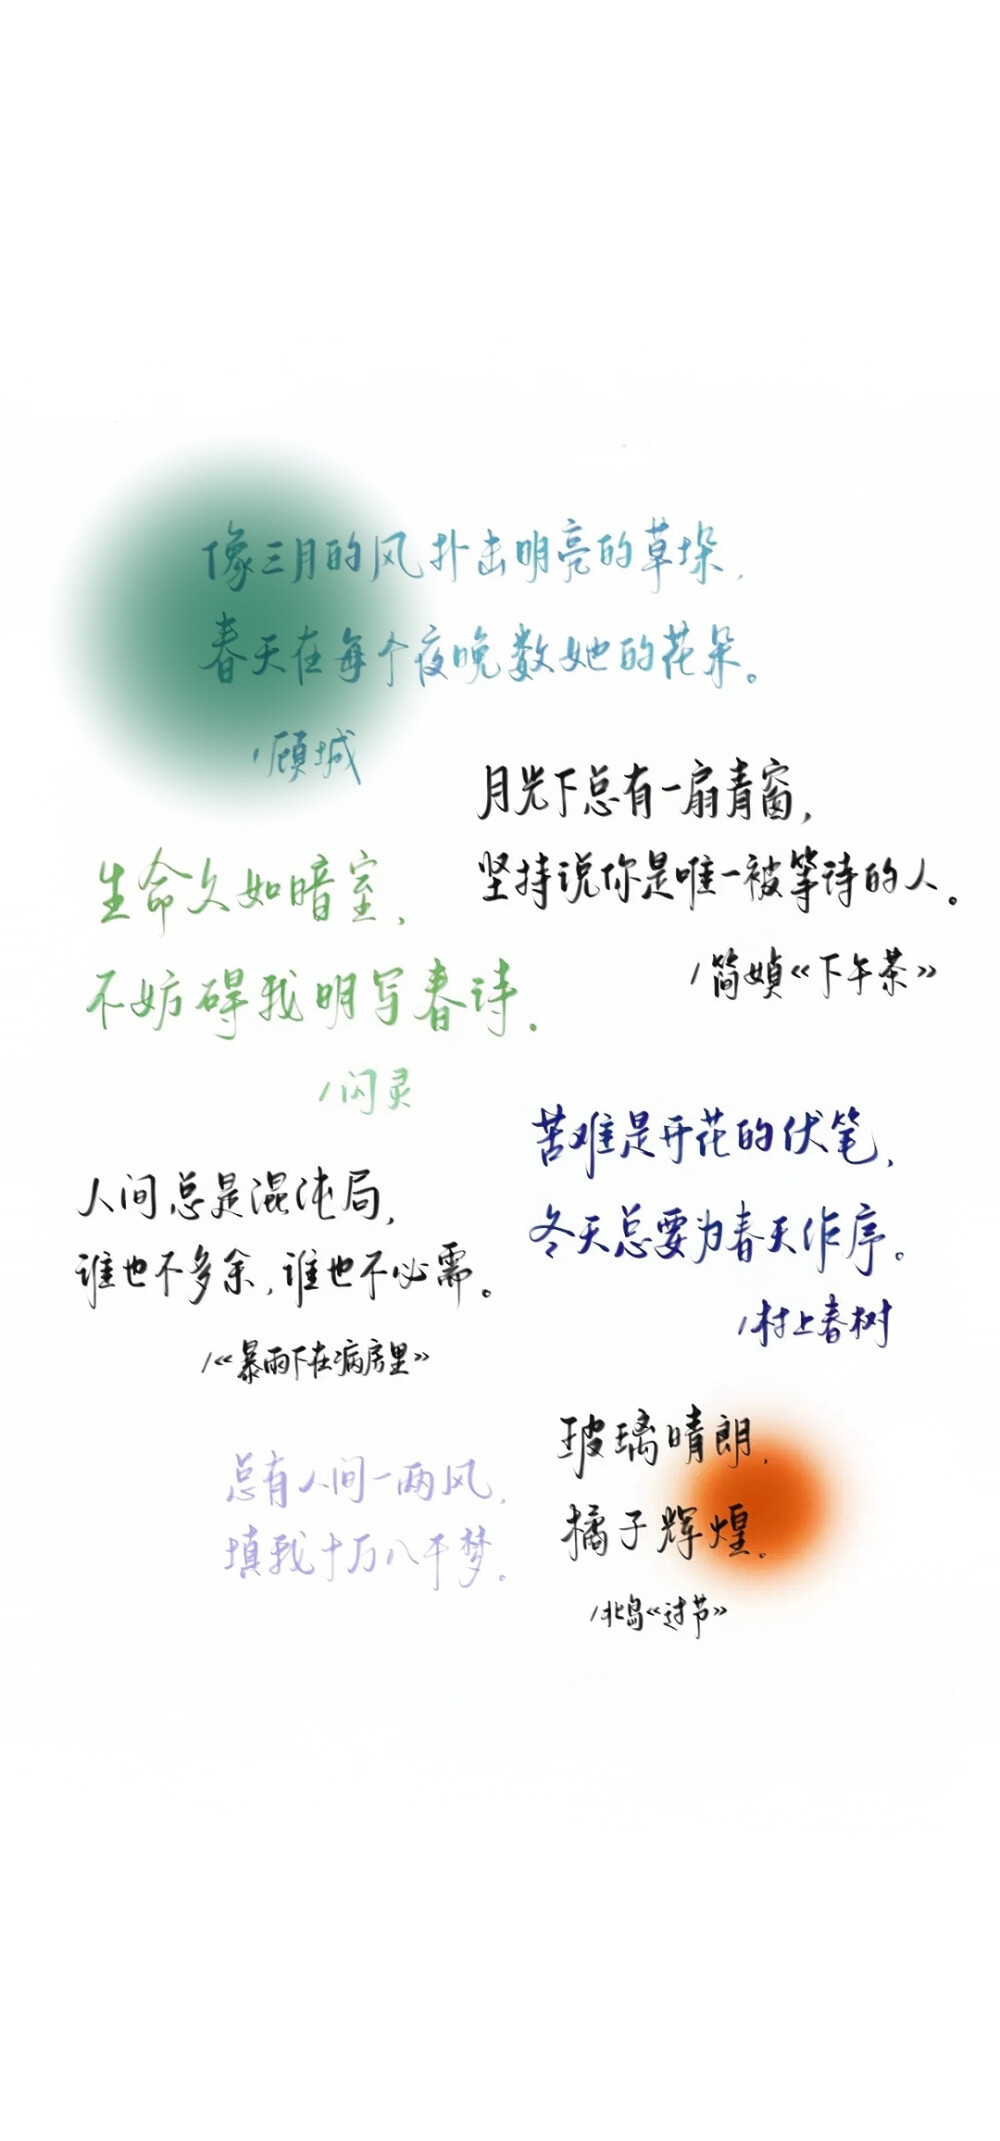 像三月的风扑击明亮的草垛，
春天在每个夜晚数她的花朵。
/顾城
月光下总有一扇青窗，
坚持说你是唯一被等待的人。
/简媜《下午茶》
生命久如暗室，
不妨碍我明写春诗．
/闪灵
苦难是开花的伏笔，
冬天总要为春天作序。
/村上春树
人间总是混沌局，
谁也不多余，谁也不必需。
/《暴雨下在病房里》
玻璃晴朗，
橘子辉煌。
/北岛《过节》
总有人间一两风，
填我十万八千梦。